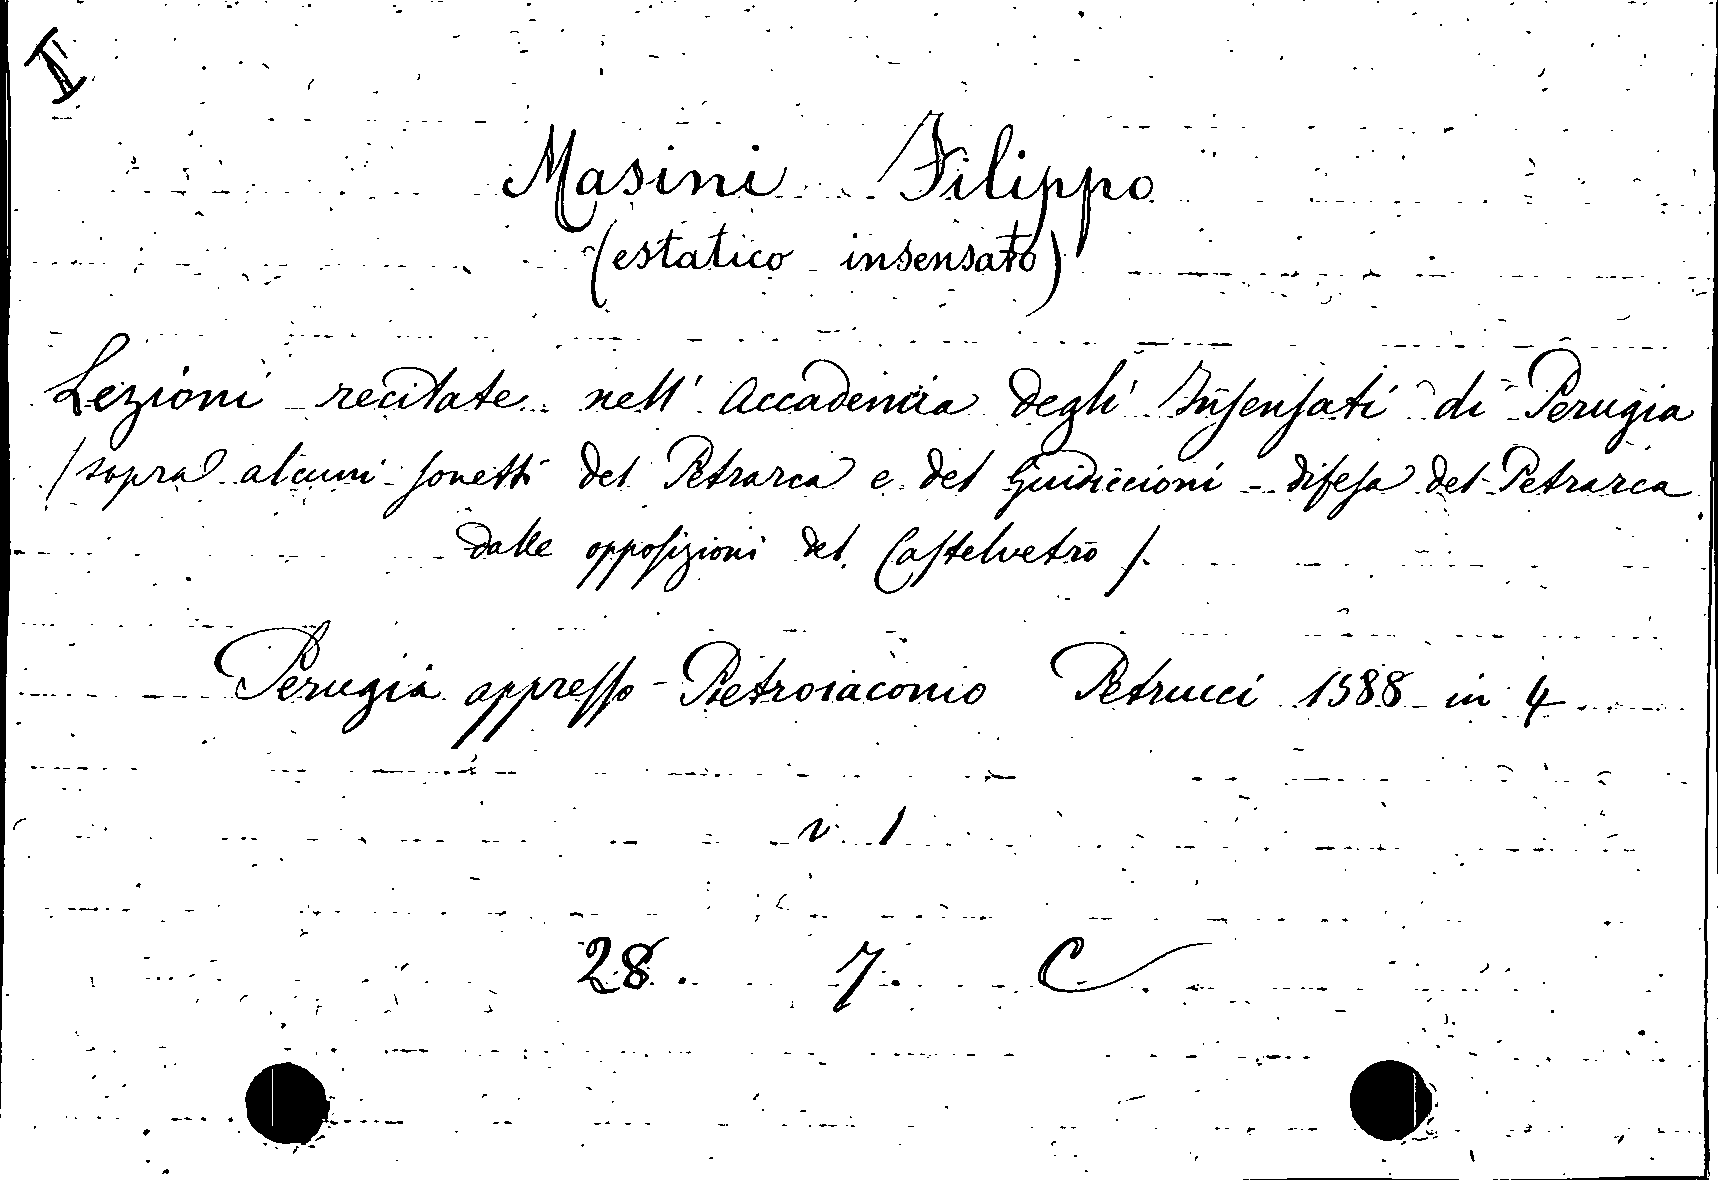 I
Masini Filippo
(estatico insensato)
Lezioni recitate nell' Accademia degli Insensati di Perugia
(sopra alcuni sonetti del Petrarca e del Guidiccioni - difesa del Petrarca
dalle opposizioni del Castelvetro).
Perugia appresso Pietroiacomo Petrucci 1588 in 4
v. 1
28. 7. C.